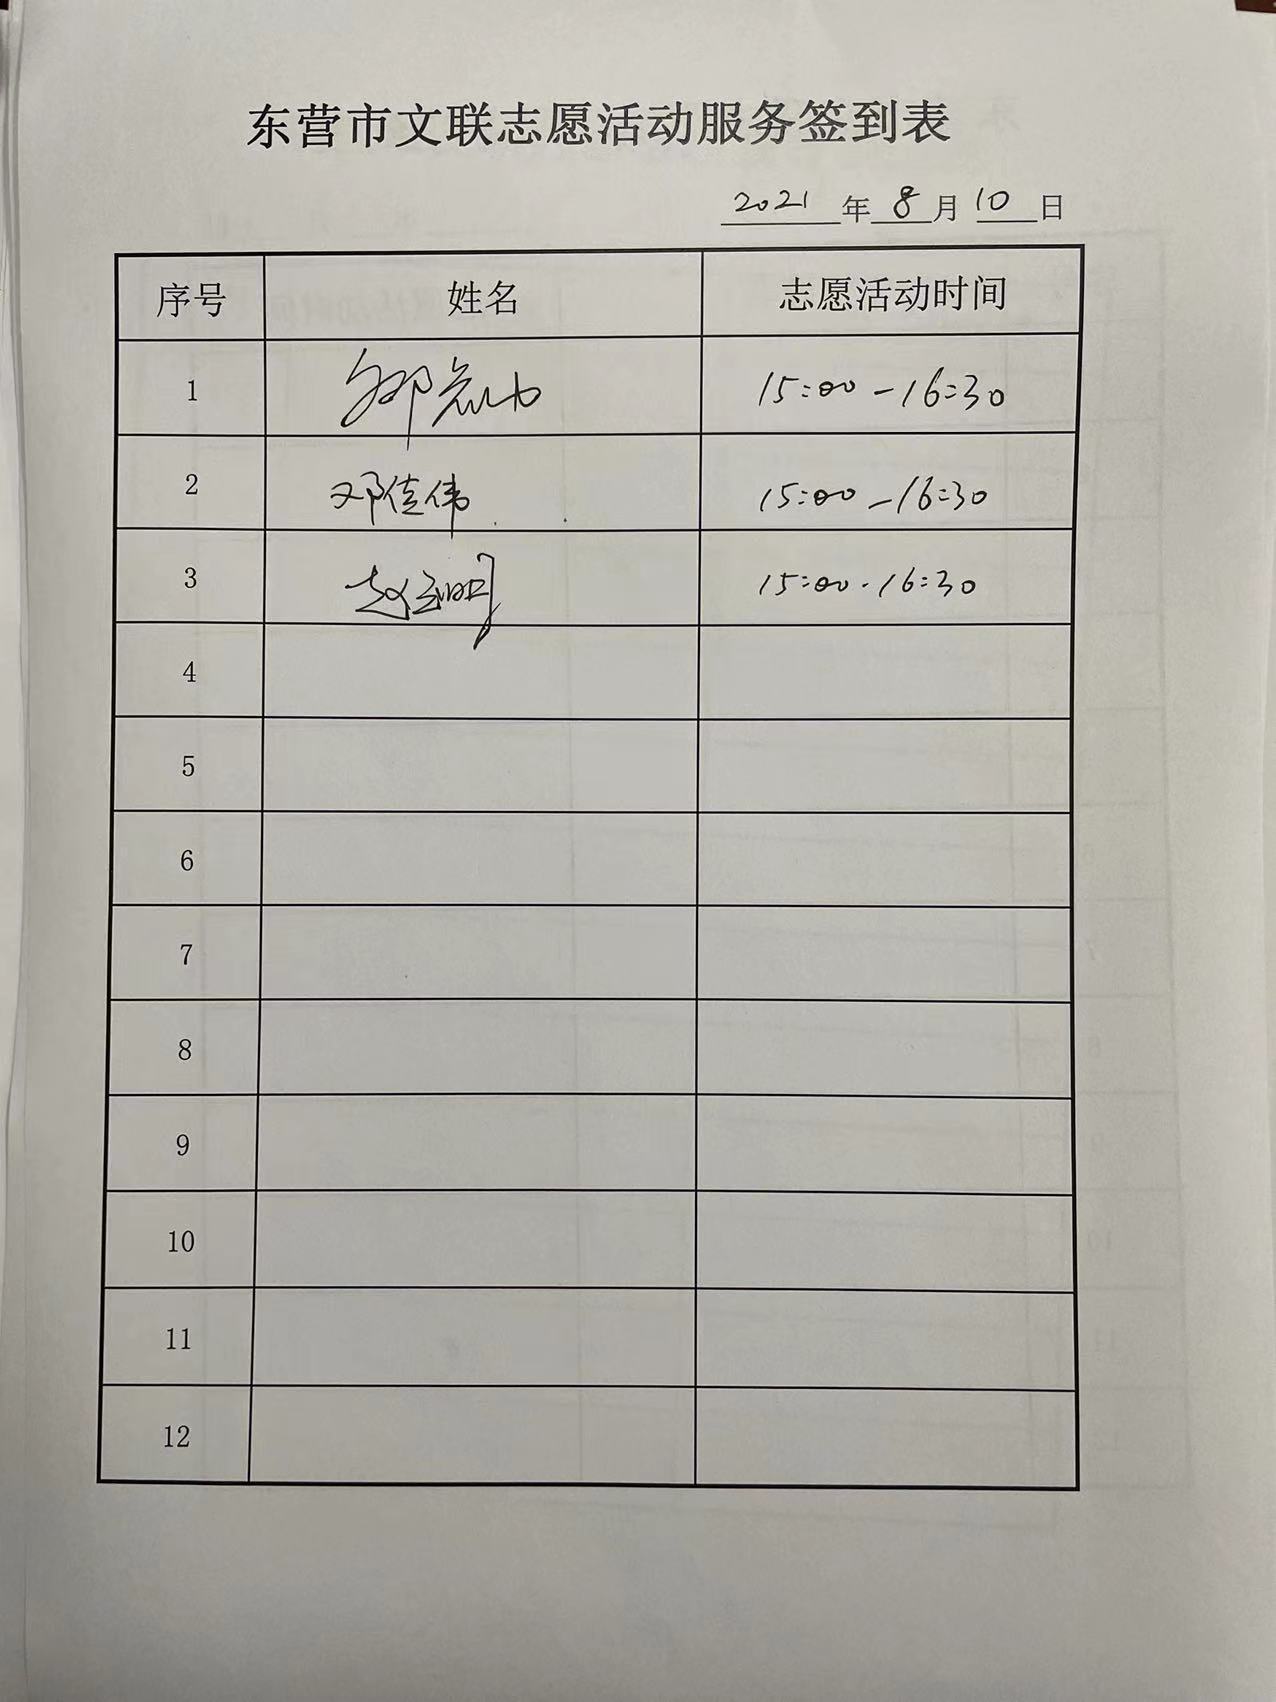 东营市文联志愿活动服务签到表
2021年8月10日
序号 姓名 志愿活动时间
1 15:00-16:30
2 邓佳伟 15:00-16:30
3 赵 明 15:00-16:30
4
5
6
7
8
9
10
11
12